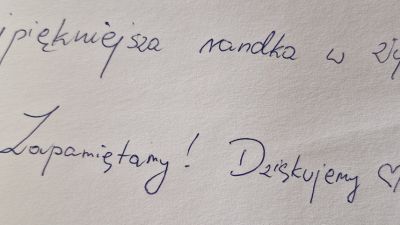 jpiękniejsza randka w ży
Zapamiętamy! Dziękujemy ♡